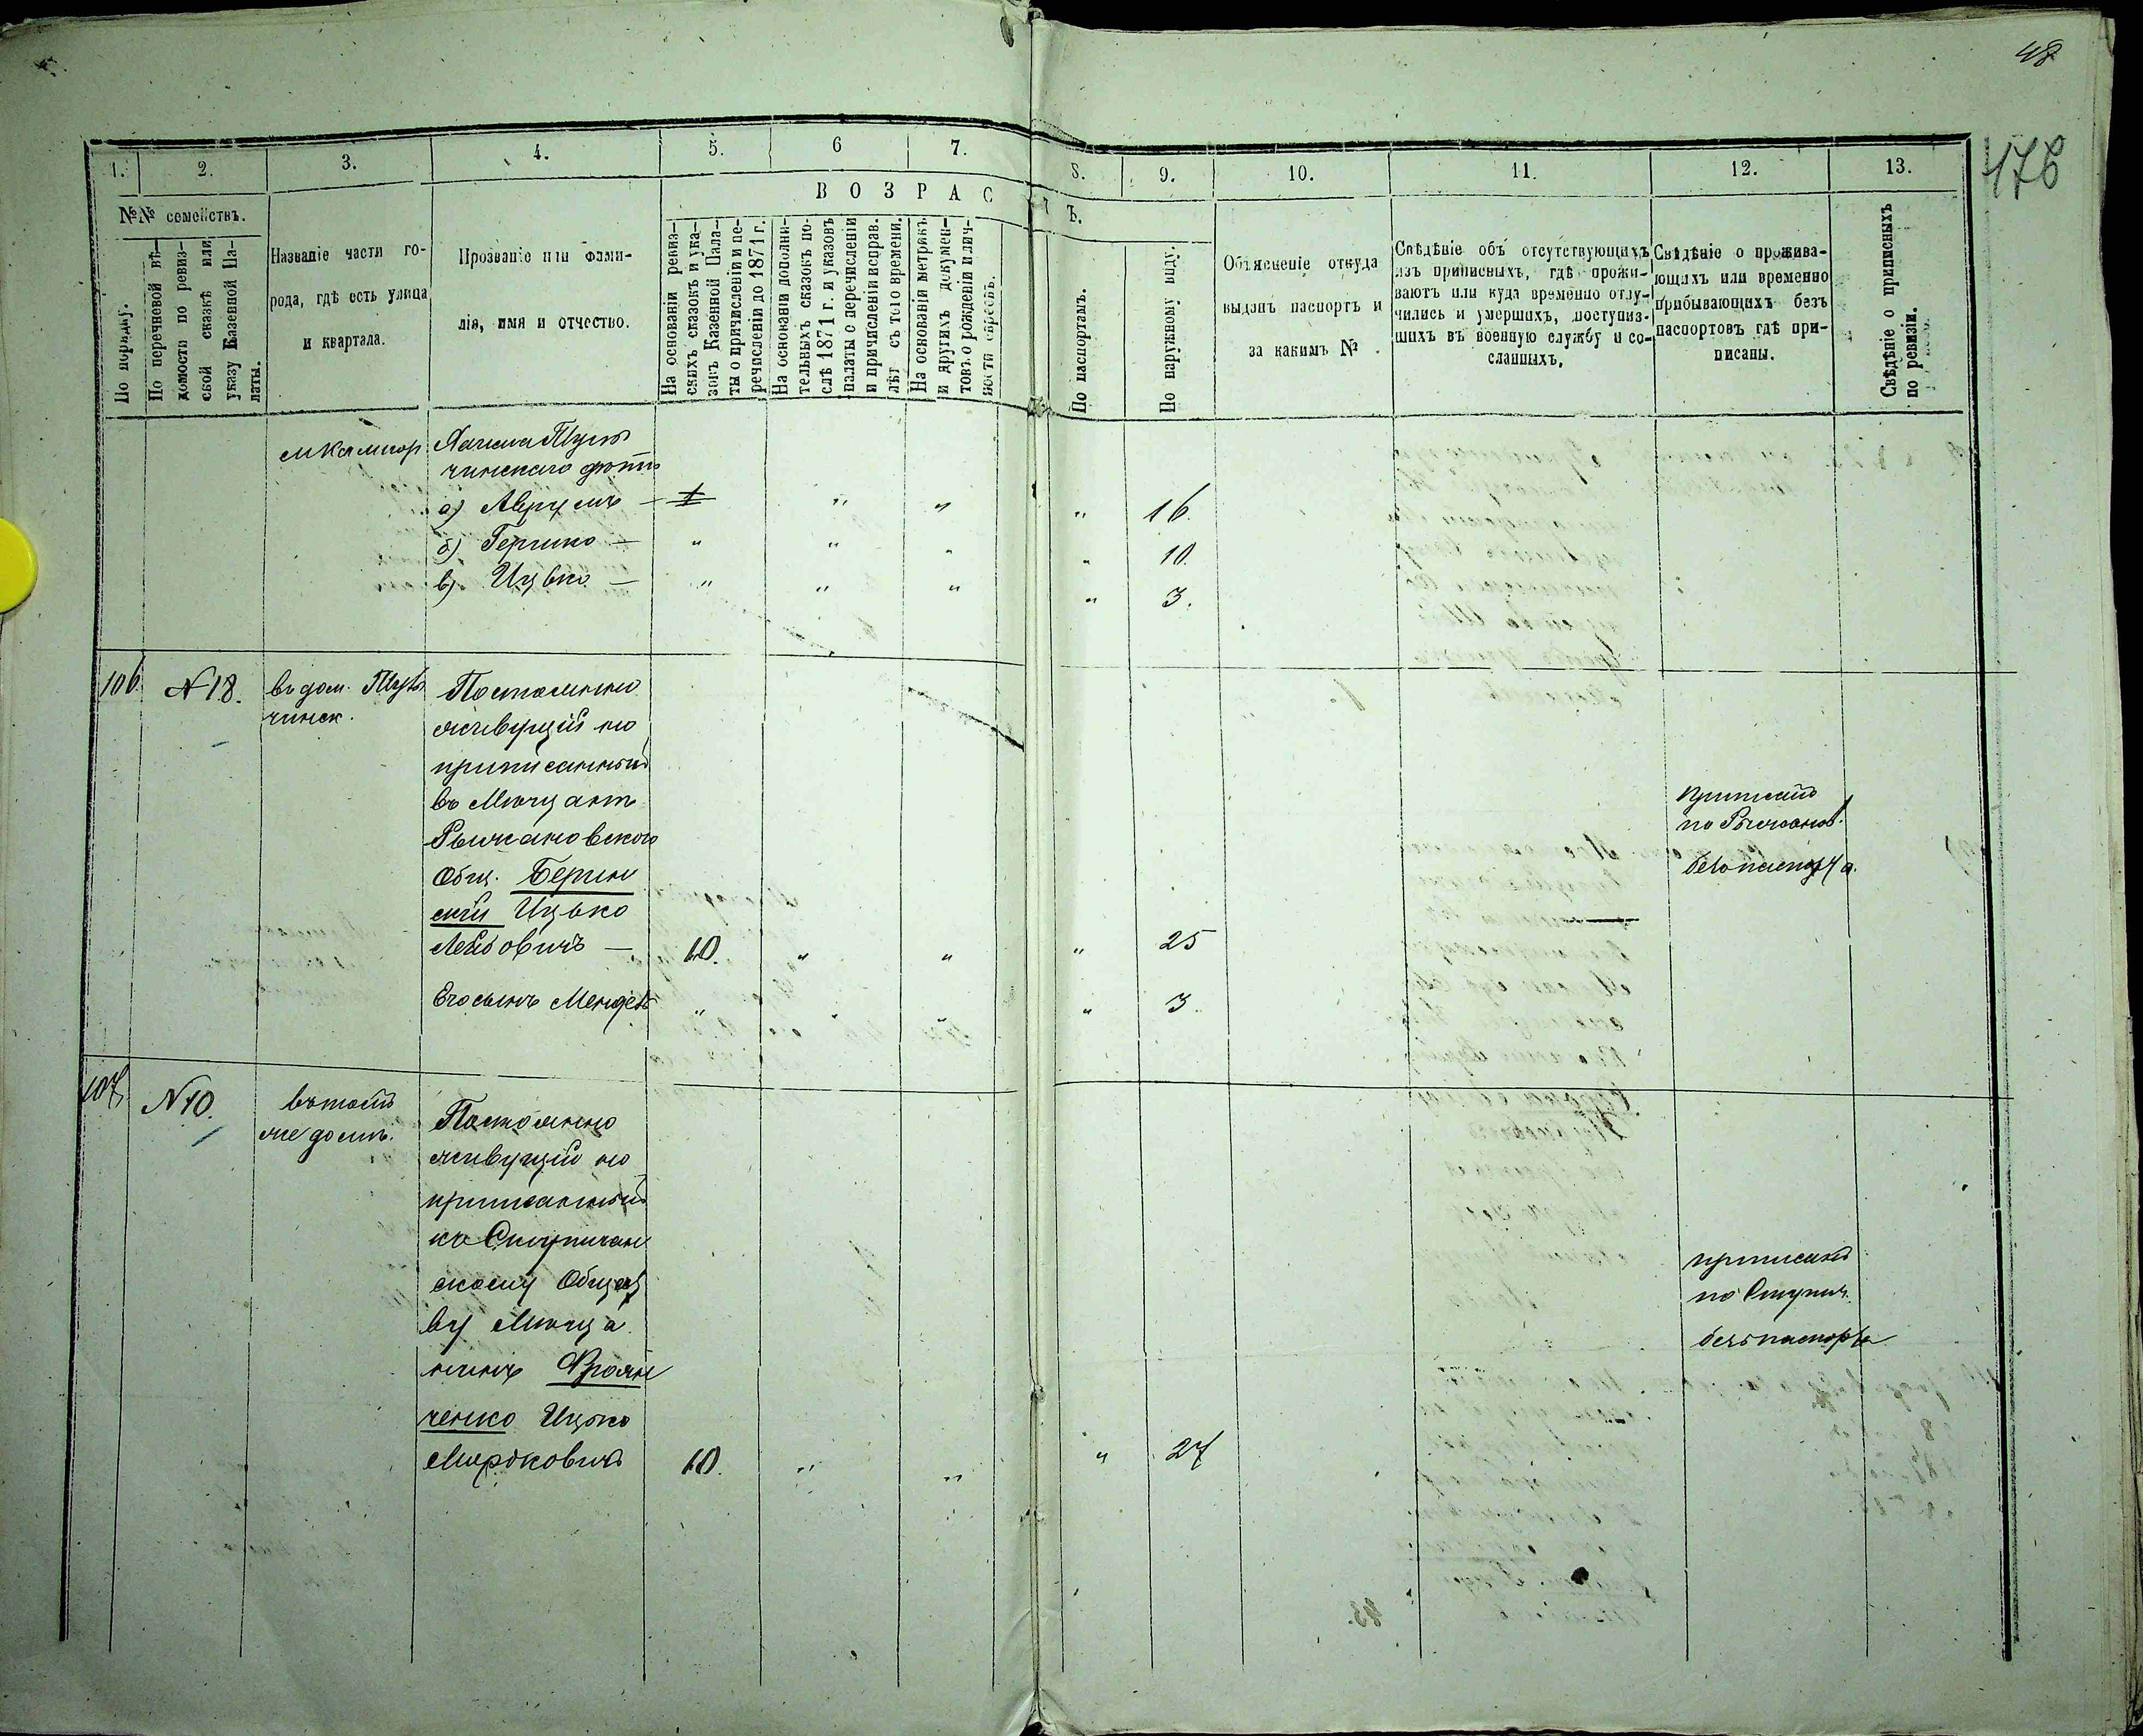 48
476
1.
2.
3.
4.
5.
6
7.
8.
9.
10.
11.
12.
13.
№№ семействъ.
По порядку.
По перечневой вѣ-
домости по ревиз-
ской сказкѣ или
указу Казенной Па-
латы.
Названіе части го-
рода, гдѣ есть улица
и квартала.
Прозваніе или фами-
лія, имя и отчество.
ВОЗРАС
Ъ.
На основаніи ревиз-
скихъ сказокъ и ука-
зовъ Казенной Пала-
ты о причисленіи и пе-
речисленіи до 1871 г.
На основаніи дополни-
тельныхъ сказокъ по-
слѣ 1871 г. и указовъ
палаты о перечисленіи
и причисленіи исправ.
лѣт съ того времени.
На основаніи метрикъ
и другихъ докумен-
товъ о рожденіи и лич-
ности евреевъ.
По паспортамъ.
По наружному виду.
Объясненіе откуда
выданъ паспортъ и
за какимъ №
Свѣдѣніе объ отсутствующихъ
изъ приписныхъ, гдѣ прожи-
ваютъ или куда временно отлу-
чились и умершихъ, поступив-
шихъ въ военную службу и со-
сланныхъ.
Свѣдѣніе о прожива-
ющихъ или временно
прибывающихъ безъ
паспортовъ гдѣ при-
писаны.
Свѣдѣніе о приписныхъ
по ревизіи.
Туль
чинскаго дѣти
а) Аврумъ — 1 " " " 16.
б) Гершко — " " " " 10.
в) Ицько — " " " " 3.
106. №18. въ дом. Туль
чинск.
Постоянно
живущій но
приписанный
въ Мѣщан
Рышкановского
Общ. Берин
скій Ицько
Лейбовичъ — 10. " " " 25
приписанъ
по Рышканов.
безъ паспорта.
Его сынъ Мендель " " 3.
107. №10. въ томъ
же домѣ.
Постоянно
живущій но
приписанный
къ
скому Общест
ву Мѣща
нинъ
ченко Ицько
Мирковичъ 10. " " " 27
приписанъ
по
безъ паспорта